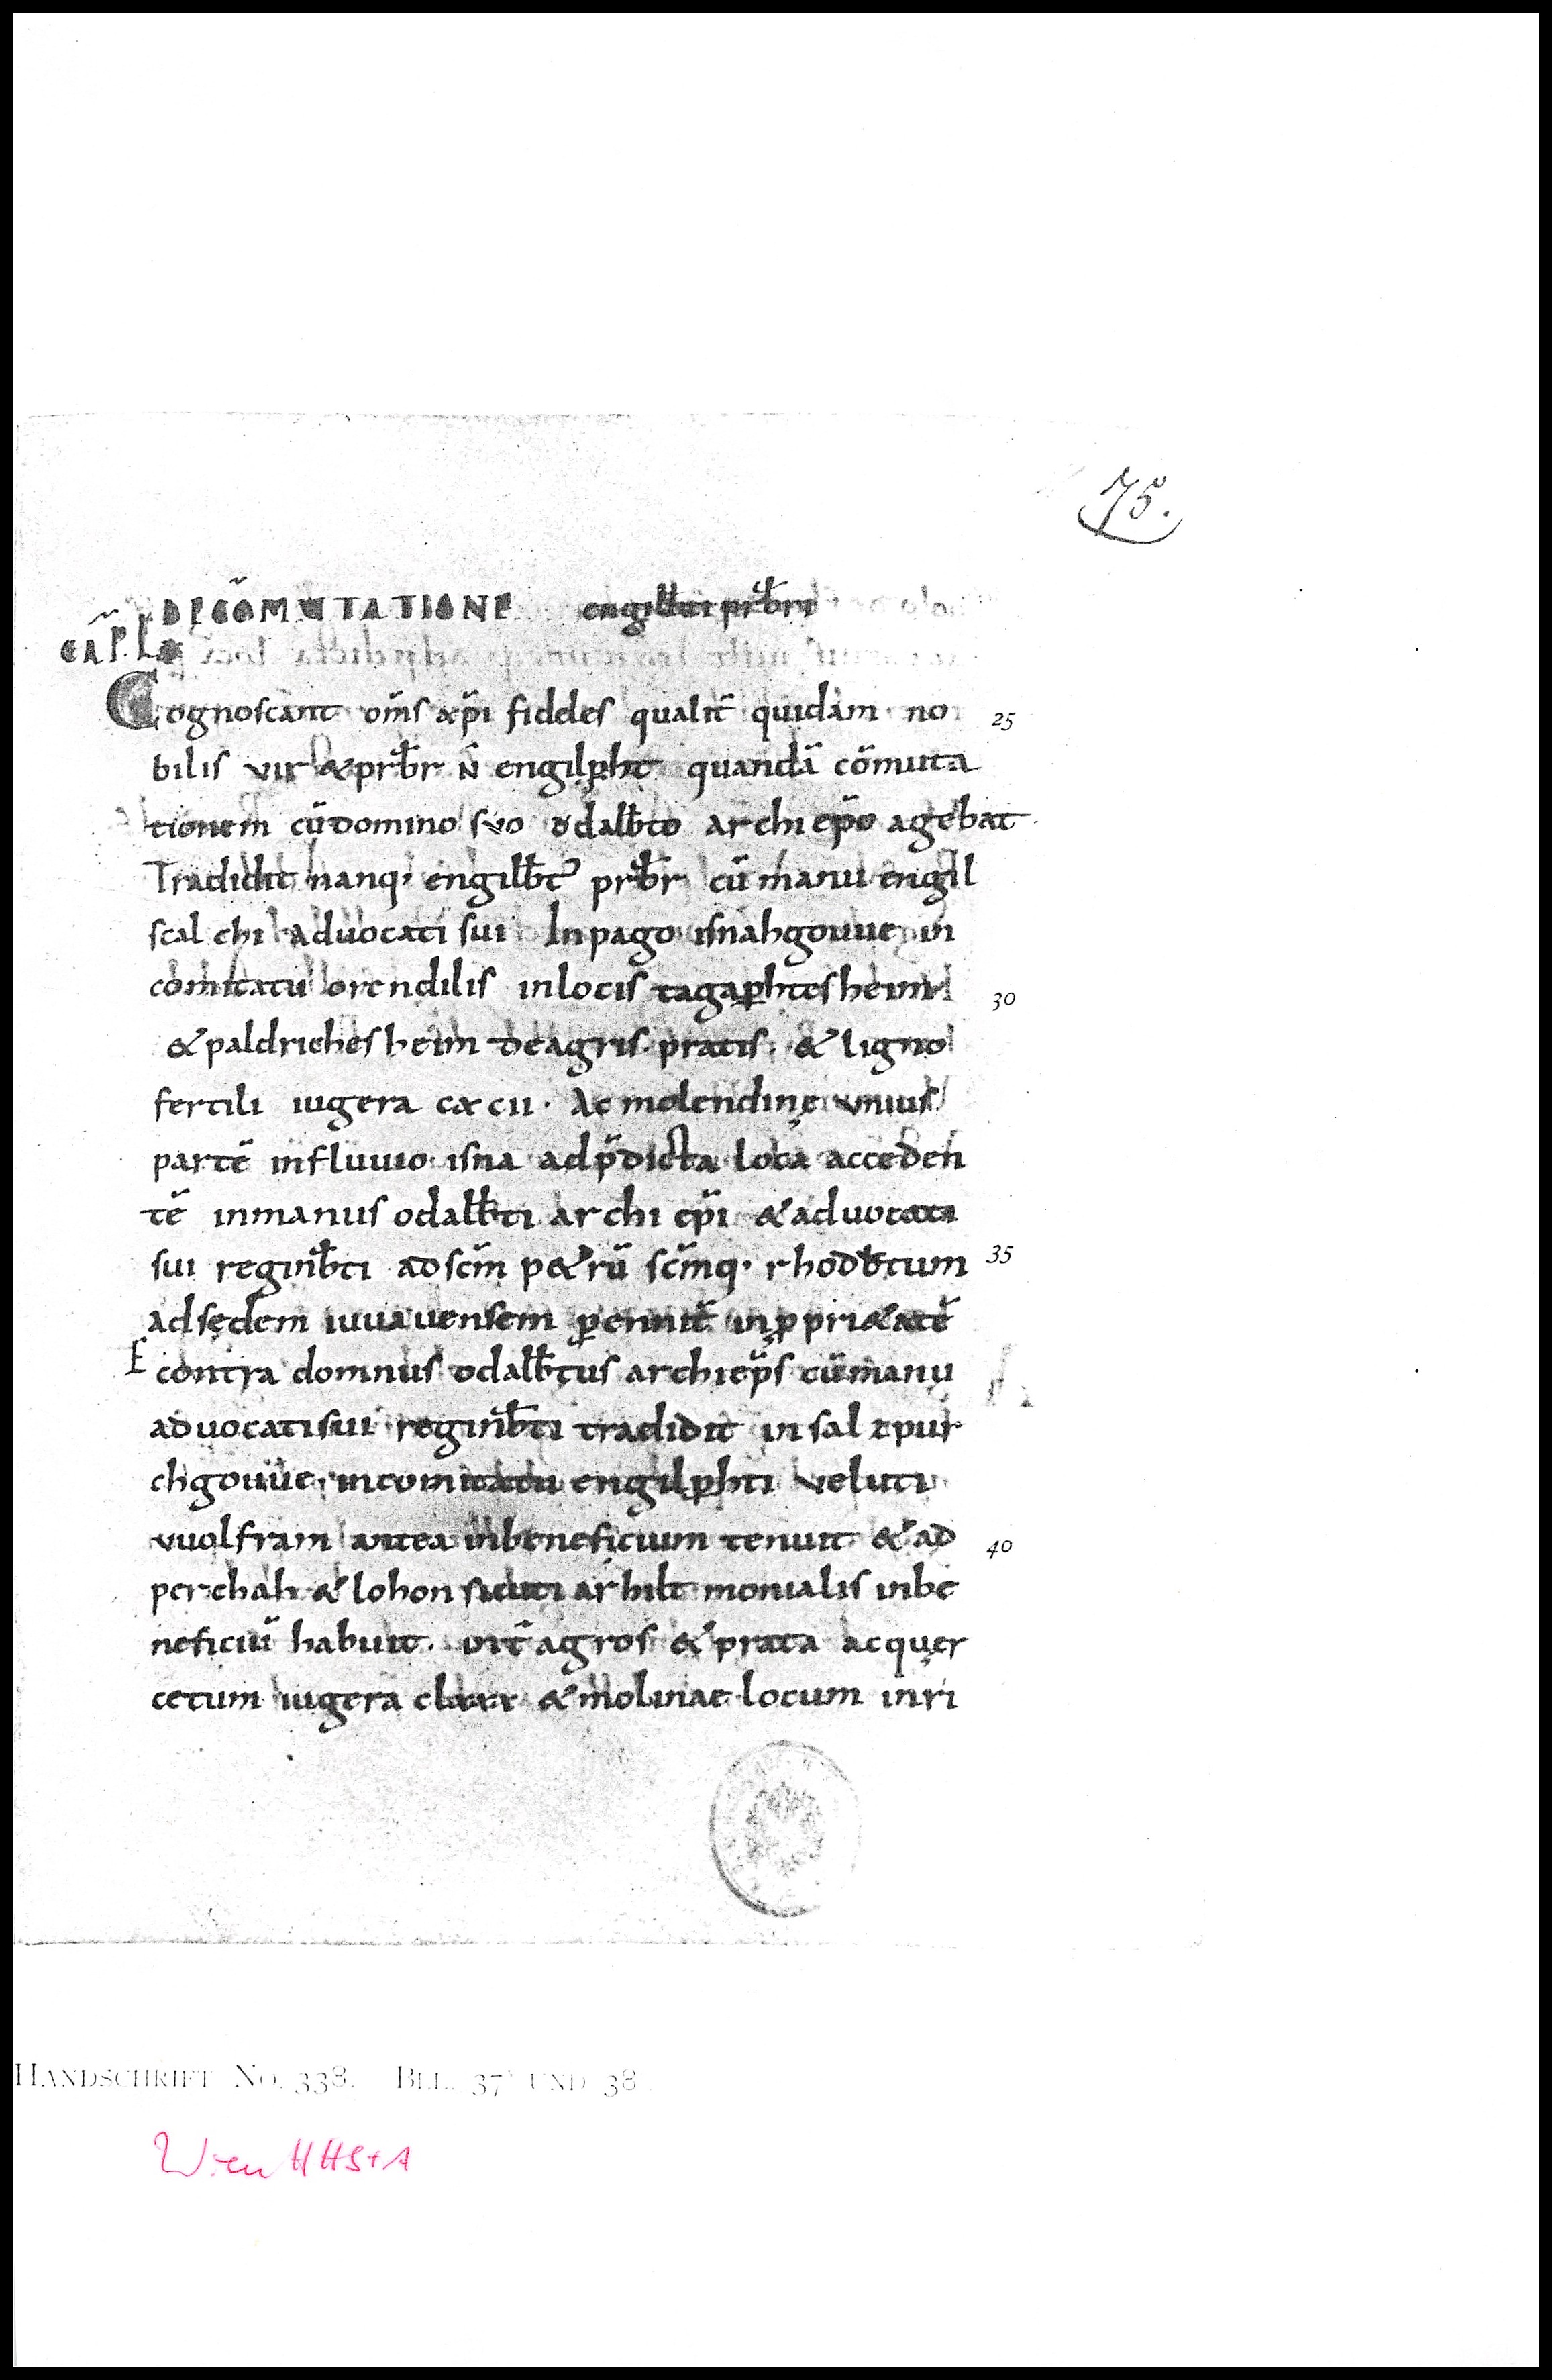 75.
DE CO͂MUTATIONE engilb̄ti pr̄bri
CAP̃. L
Cognoscant om̄s xp̄i fideles qualit̄ quidam no 25
bilis vir & pr̄br N̄ engilꝑht quandā cōmuta
tionem cū domino suo odalb̄to archiep̄o agebat
Tradidit nanq; engilb̄t᾽ pr̄br cū manu engil
scalchi advocati sui In pago isnahgouue in
comitatu orendilis in locis tagaꝑhtesheim 30
& paldrichesheim de agris. pratis. & ligno
fertili iugera cxcii. Ac molendinę unius
partē in fluuio isna ad p̄dicta loca acceden
tē in manus odalb̄ti archiep̄i & aduocati
sui reginb̄ti ad sc̄m p&rū sc̄mq; rhodb̄tum 35
ad sędem iuuauensem ꝑennit̄ in ꝓpri&atē
E contra domnus odalb̄tus archiep̄s cū manu
advocati sui reginb̄ti tradidit in salzpur
chgouue in comitatu engilꝑhti veluti
vuolfram antea in beneficium tenuit & ad 40
perchah & lohon sicuti arhilt monialis in be
neficiū habuit. int̄ agros & prata ac quer
cetum iugera clxxx & molinae locum in ri
HANDSCHRIFT NO. 338. BLL. 37' UND 38.
Wien HHStA